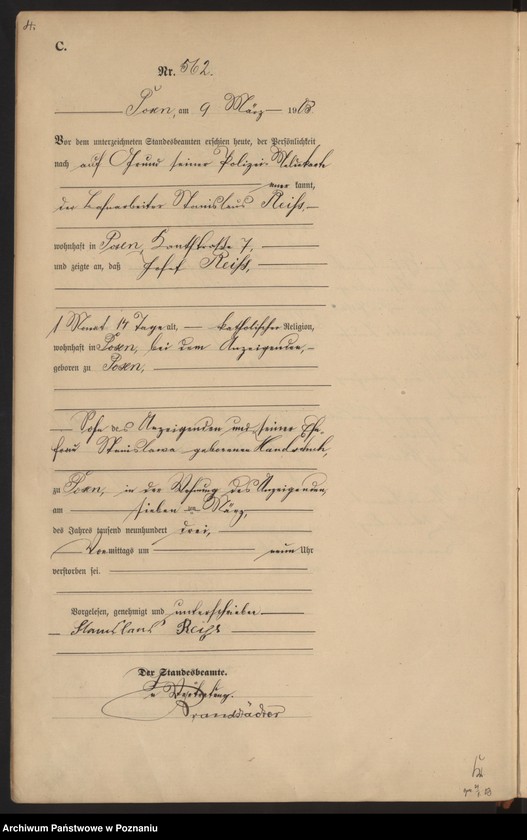 4.
C.
Nr. 562.
Posen, am 9 März 1903
Vor dem unterzeichneten Standesbeamten erschien heute, der Persönlichkeit
nach auf Grund seiner Polizei-
kannt,
der Stanislaus Reiss,
wohnhaft in Posen, 7,
und zeigte an, daß Josef Reiss,
1 Monat 14 Tage alt, katholischer Religion,
wohnhaft in Posen, bei dem Anzeigenden,
geboren zu Posen,
Sohn des Anzeigenden und seiner Ehe-
frau Stanislawa geborenen
zu Posen, in der Wohnung des Anzeigenden,
am sieben März,
des Jahres tausend neunhundert drei,
Vormittags um neun Uhr
verstorben sei.
Vorgelesen, genehmigt und unterschrieben
Stanislaus Reiss
Der Standesbeamte.
In Vertretung.
Brandstädter
Archiwum Państwowe w Poznaniu